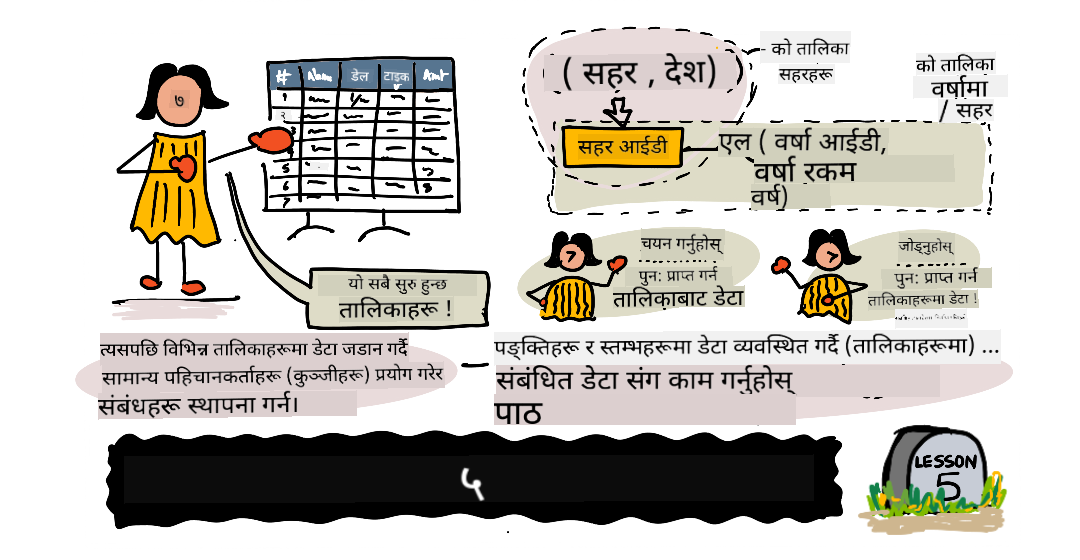 ७
# Name डेल टाइक Amt
१
२
3
4
5
6
7
8
यो सबै सुरु हुन्छ
तालिकाहरू !
( सहर , देश)
- को तालिका
सहरहरू
को तालिका
वर्षामा
/ सहर
सहर आईडी
एल ( वर्षा आईडी,
वर्षा रकम
वर्ष)
7
चयन गर्नुहोस्
पुन: प्राप्त गर्न
तालिकाबाट डेटा
7
जोड्नुहोस्
पुन: प्राप्त गर्न
तालिकाहरूमा डेटा !
त्यसपछि विभिन्न तालिकाहरूमा डेटा जडान गर्दै
सामान्य पहिचानकर्ताहरू (कुञ्जीहरू) प्रयोग गरेर
संबंधहरू स्थापना गर्न।
पङ्क्तिहरू र स्तम्भहरूमा डेटा व्यवस्थित गर्दै (तालिकाहरूमा) ...
संबंधित डेटा संग काम गर्नुहोस्
पाठ
५
LESSON
5